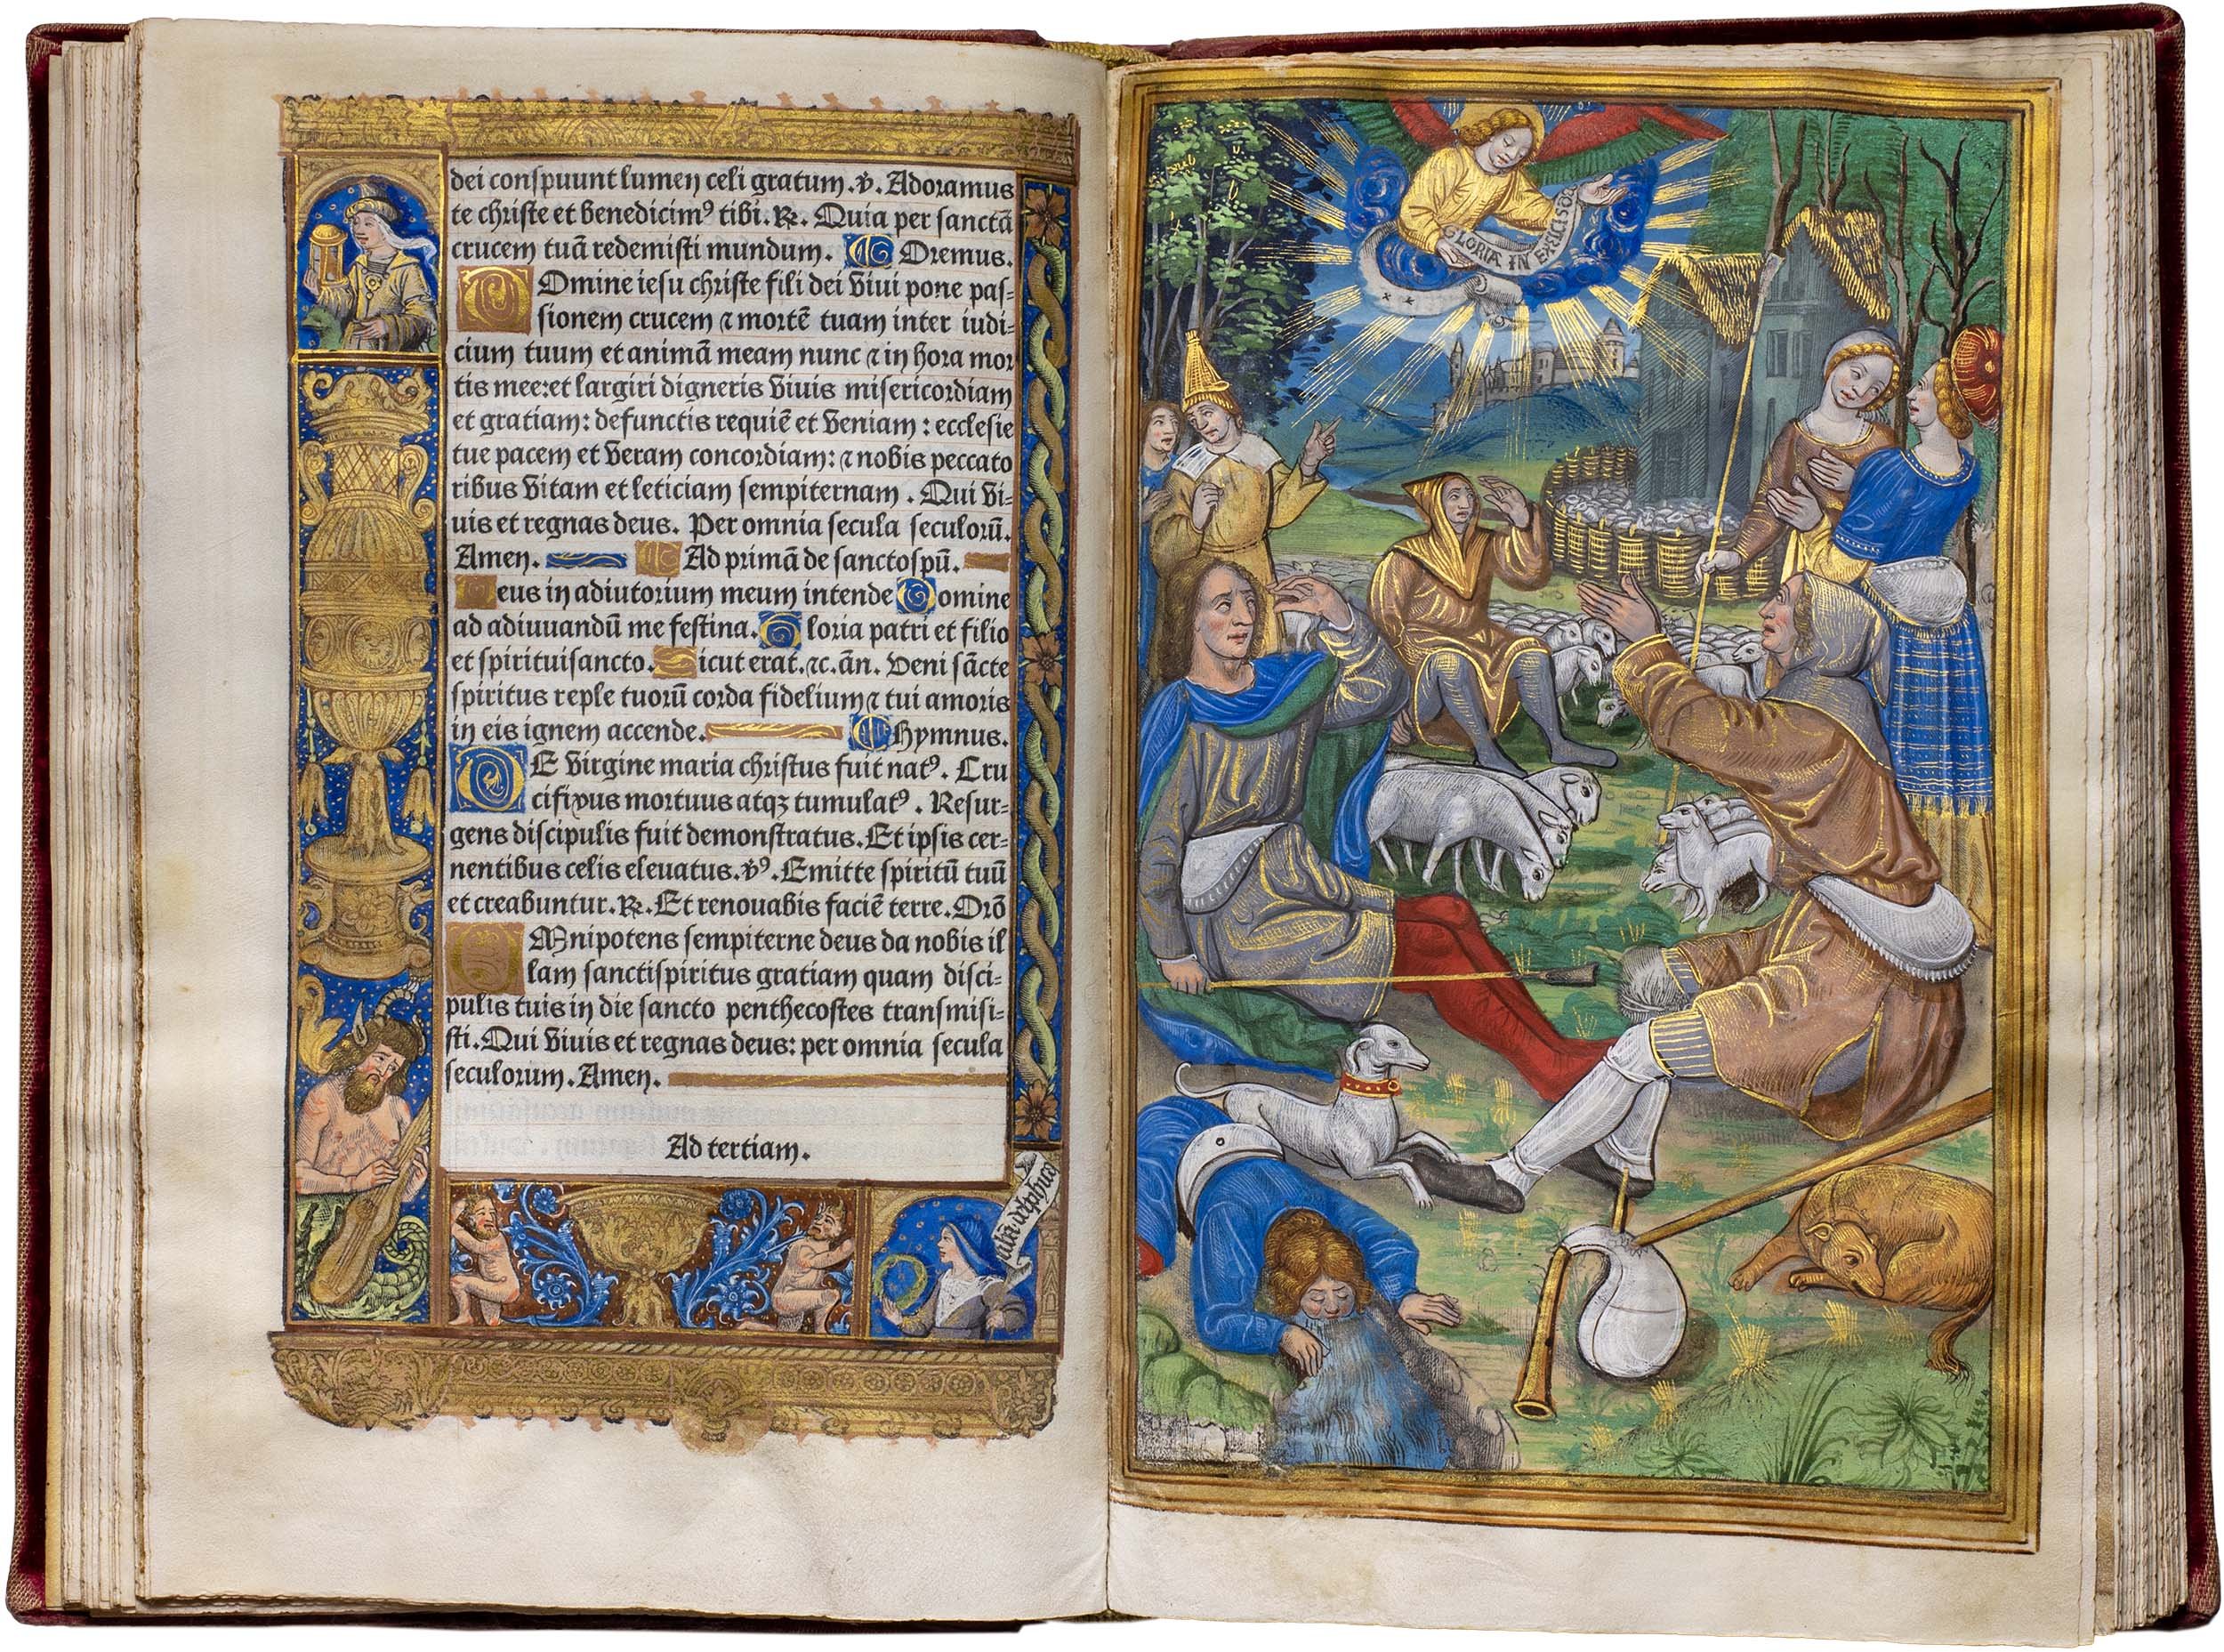 dei conspuunt lumen celi gratum. v. Adoramus
te christe et benedicimꝰ tibi. ℞. Quia per sanctā
crucem tuā redemisti mundum. Oremus.
Domine iesu christe fili dei viui pone pas=
sionem crucem ⁊ mortē tuam inter iudi=
cium tuum et animā meam nunc ⁊ in hora mor
tis mee: et largiri digneris viuis misericordiam
et gratiam: defunctis requiē et veniam: ecclesie
tue pacem et veram concordiam: ⁊ nobis peccato
ribus vitam et leticiam sempiternam. Qui vi=
uis et regnas deus. Per omnia secula seculorū.
Amen. Ad primā de sanctospū.
Deus in adiutorium meum intende Domine
ad adiuuandū me festina. Gloria patri et filio
et spirituisancto. Sicut erat. ⁊c. ān. Veni sācte
spiritus reple tuorū corda fidelium ⁊ tui amoris
in eis ignem accende. Hymnus.
DE virgine maria christus fuit natꝰ. Cru
cifixus mortuus atqꝫ tumulatꝰ. Resur=
gens discipulis fuit demonstratus. Et ipsis cer=
nentibus celis eleuatus. vꝰ. Emitte spiritū tuū
et creabuntur. ℞. Et renouabis faciē terre. Orō
OMnipotens sempiterne deus da nobis il
lam sanctispiritus gratiam quam disci=
pulis tuis in die sancto penthecostes transmisi=
sti. Qui viuis et regnas deus: per omnia secula
seculorum. Amen.
Ad tertiam.
GLORIA IN EXCELSIS